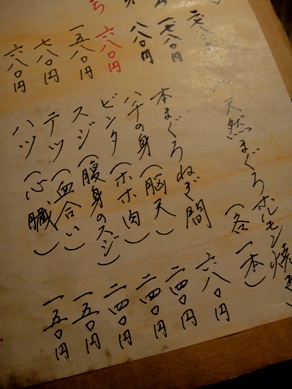 八〇円
八八〇円
六八〇円
一五八〇円
七八〇円
六八〇円
天然まぐろホルモン焼き
(各一本)
本まぐろねぎ間 六八〇円
ハチの身(脳天) 二四〇円
ビンタ(ホホ肉) 二四〇円
スジ(腹身のスジ) 二四〇円
テッ(血合い) 一五〇円
ハツ(心臓) 一五〇円